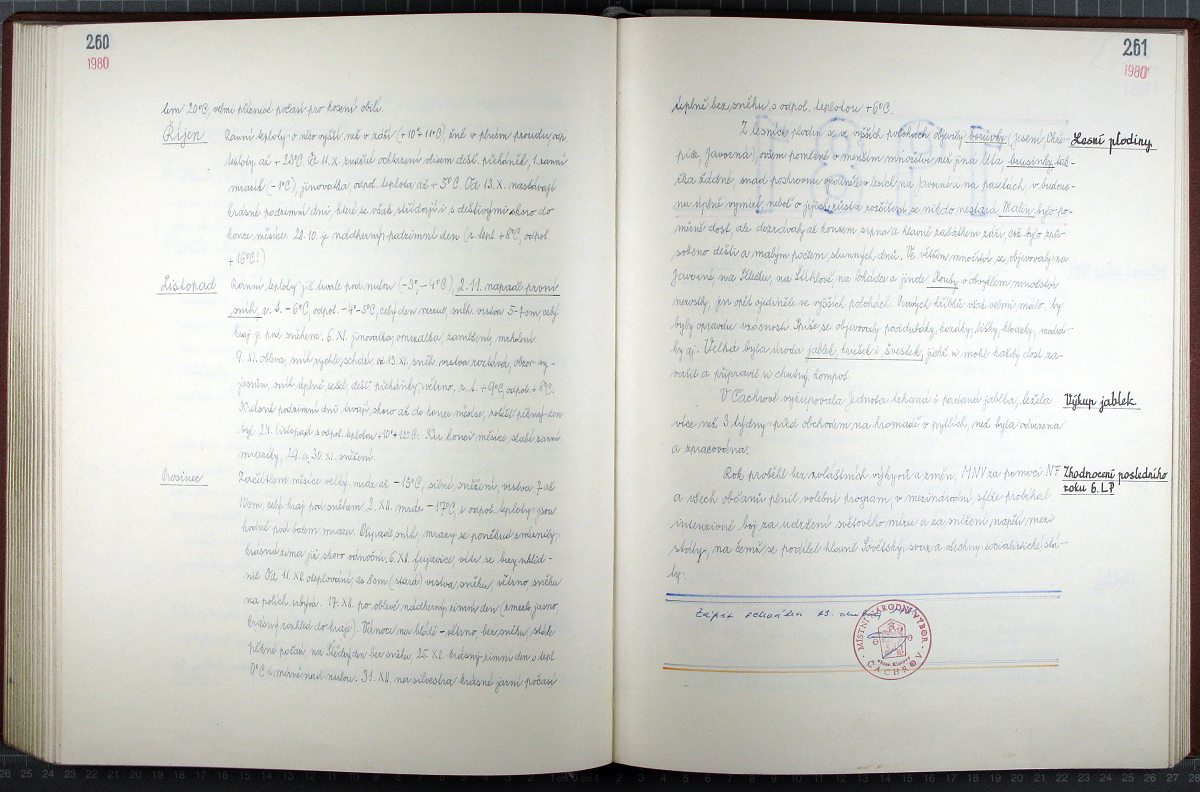 260
1980
tem 20°C, velmi příznivé počasí pro kosení obilí.
Říjen Ranní teploty o něco vyšší než v září (+10°+11°C) žně v plném proudu odp.
teploty až + 23°C. Od 11. X. značné ochlazení občasn. dešť. přeháněk, 1. ranní
mrazík (-1°C), jinovatka, odpol. teplota až + 5°C. Od 13. X. nastávají
krásné podzimní dni, které se však střídají i s deštivými skoro do
konce měsíce. 28. 10. je nádherný podzimní den (r. tepl. +6°C, odpol.
+16°C!)
Listopad Ranní teploty již trvale pod nulou (-3°, -4°C), 2. 11. napadl první
sníh, r. t. -6°C, odpol. -4°-5°C, celý den mrzne, sněh. vrstva 5-7 cm celý
kraj je pod sněhem. 6. XI. jinovatka, omrzalka, zamlžení, mrholení
9. XI. obleva, sníh rychle schází. 13. XI. sněh. vrstva roztává, obzor vy-
jasněn, sníh úplně sešel, dešť. přeháňky, větrno, r. t. +9°C, odpol. +8°C.
Krásné podzimní dni trvají skoro až do konce měsíce, zvlášť pěkný den
byl 27. listopad s odpol. teplotou +10°+12°C. Ku konci měsíce slabé ranní
mrazíky, 29. a 30. XI. sněžení.
Prosinec Začátkem měsíce velký mráz až -15°C, silné sněžení, vrstva 7 až
10cm, celý kraj pod sněhem. 2. XII. mráz -17°C, i odpol. teploty jsou
hodně pod bodem mrazu. Olyspal. sníh mrazy se poněkud zmírnily,
krásná zima již skoro vánoční. 6. XII. fujavice, vítr se brzy uklid-
nil. Od 11. XII. oteplování, 25 8cm (stará) vrstva sněhu, větrno, sněhu
na polích ubývá. 17. XII. po oblevě nádherný zimní den (zmrzlo, jasno,
krásný rozhled do kraje). Vánoce na blátě - větrno, bez sněhu, stálé
pěkné počasí, na Štědrý den bez sněhu. 25. XII. krásný zimní den s tepl.
0°C i mírně nad nulou. 31. XII. na silvestra krásné jarní počasí
261
1980
úplně bez sněhu s odpol. teplotou +6°C.
Z lesních plodin se ve vyšších polohách objevily borůvky (Jesení, Chře-
pice, Javorná) ovšem poměrně v menším množství než jiná léta, brusinky tak-
řka žádné, snad poskrovnu ojediněle v lesích na Javorné a na pasekách, v budouc-
nu úplně vymizí, neboť o jejich růst a rozšíření se nikdo nestará. Malin bylo po-
měrně dost, ale dozrávaly až koncem srpna a hlavně začátkem září, což bylo způ-
sobeno dešti a malým počtem slunných dnů. Ve větším množství se objevovaly na
Javorné, na Kletku, na Štihlově, na Okádce a jinde. Houby v obvyklém množství
nerostly, jen opět ojediněle ve vyšších polohách. Pravých hřibků však velmi málo, ty
byly opravdu vzácností. Spíše se objevovaly poddubáky, kozáky, lišky, klouzky, modrá-
ky aj. Velká byla úroda jablek, hrušek i švestek, jichž si mohl každý dost za-
vařit a připravit si chutný kompot.
V Čachrově vykupovala Jednota trhaná i padaná jablka, ležela
více než 3 týdny před obchodem na hromadě v pytlích, než byla odvezena
a zpracována.
Rok proběhl bez zvláštních výkyvů a změn, MNV za pomoci NF
a všech občanů plnil volební program, v mezinárodní sféře probíhal
intenzivně boj za udržení světového míru a za snížení napětí mezi
státy, na čemž se podílel hlavně Sovětský svaz a všechny socialistické stá-
ty.
Lesní plodiny
Výkup jablek
Zhodnocení posledního
roku 6. LP
Zápis schválen 23.
MÍSTNÍ NÁRODNÍ VÝBOR
ČACHROV